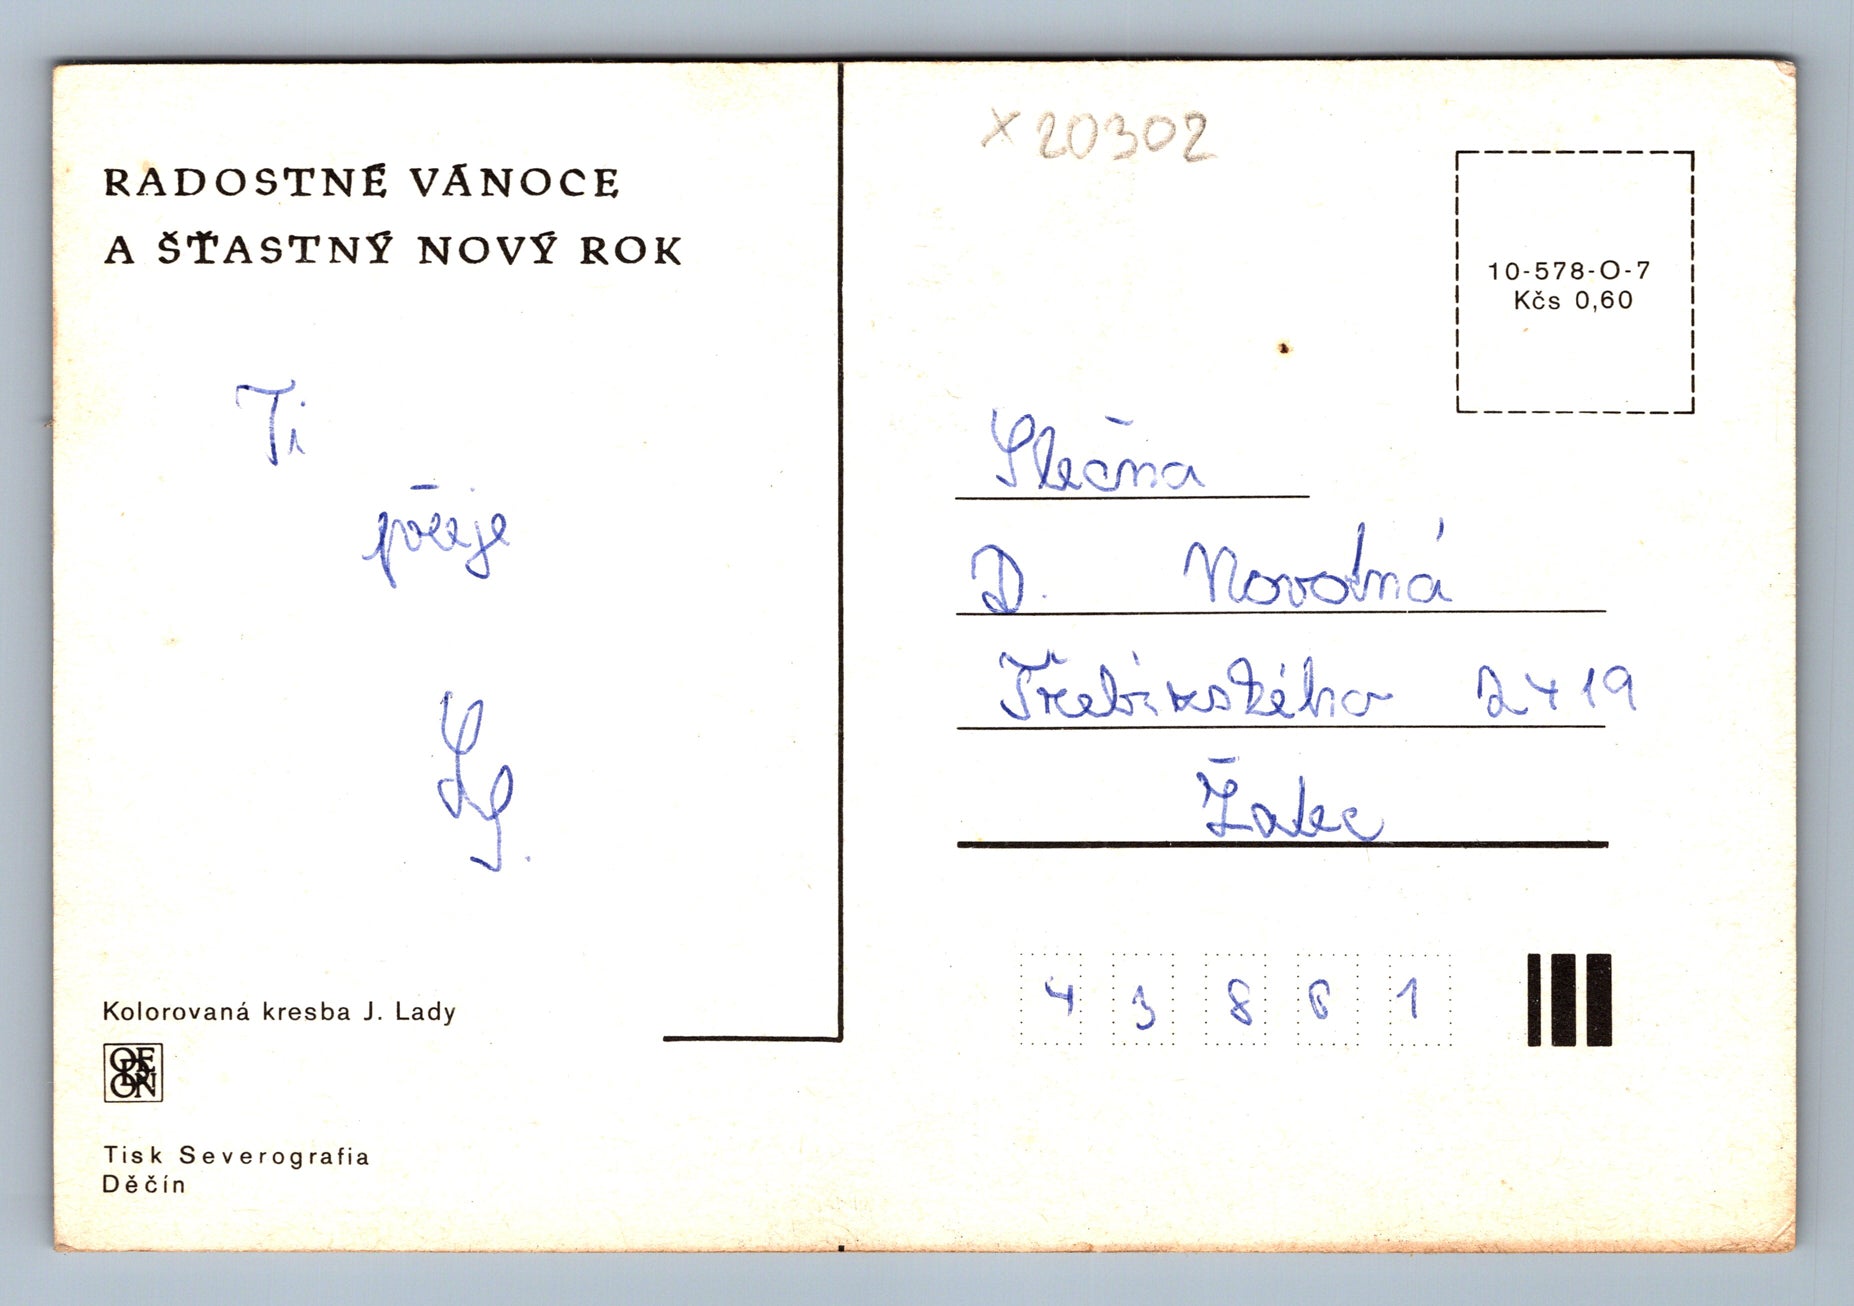 RADOSTNÉ VÁNOCE
A ŠŤASTNÝ NOVÝ ROK
Ti
přeje
Kolorovaná kresba J. Lady
ODEON
Tisk Severografia
Děčín
x 20302
10-578-O-7
Kčs 0,60
Slečna
D. Novotná
Třebízského 2419
Žatec
43861